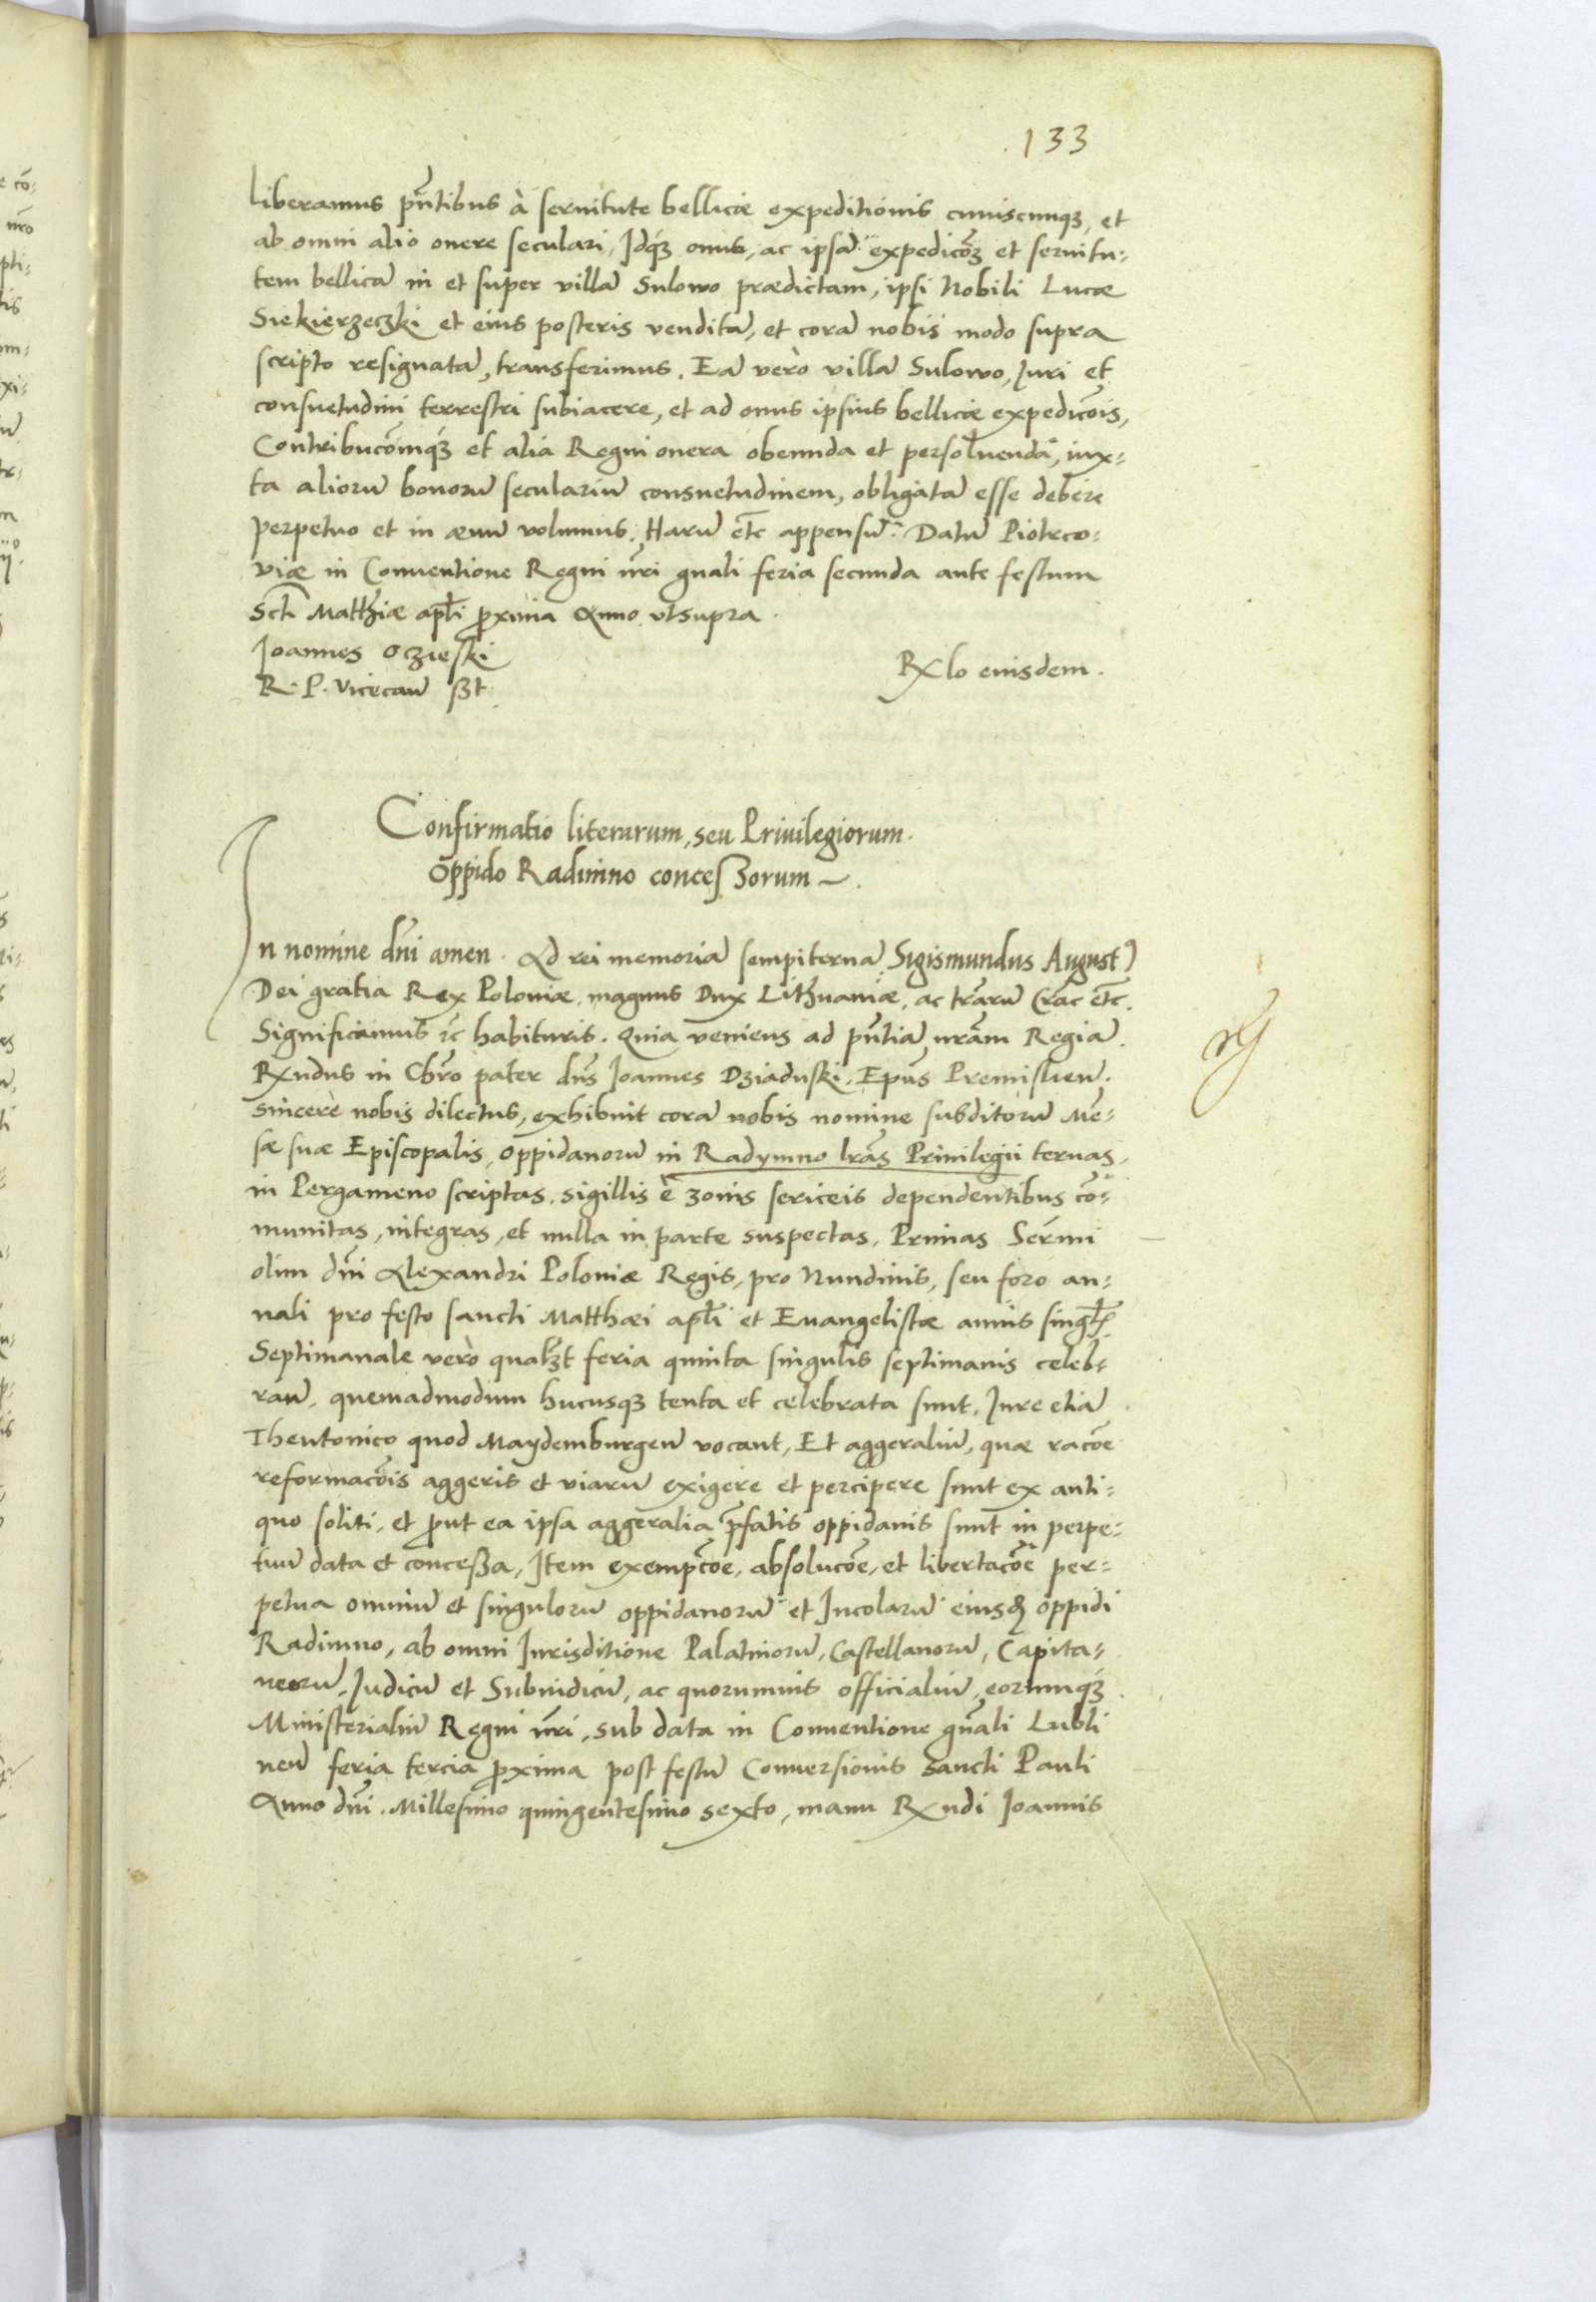 133
liberamus pñtibus à seruitute bellicæ expeditionis cuiuscunqȝ, et
ab omni alio onere seculari, Idqȝ onus, ac ipsã expedicõȝ et seruitu-
tem bellicã in et super villã Sulowo prædictam, ipsi Nobili Lucæ
Siekierzeczki et eius posteris venditã, et corã nobis modo supra
scripto resignatã, transferimus. Eã verò villã Sulowo, Juri et
consuetudini terrestri subiacere, et ad onus ipsius bellicæ expedicõis,
Contribucõmqȝ et alia Regni onera obeunda et persoluenda, iux-
ta aliorũ bonorũ seculariũ consuetudinem, obligatã esse debere
perpetuo et in æuũ volumus. Harũ etc appensũ. Datũ Piotrco-
viæ in Conuentione Regni nr̃i gnali feria secunda ante festum
Scti Matthiæ apl̃i p̃xima Anno vtsupra.
Joannes Oczieski
R. P. Vicecan̄ ss̃t.
Rx̃lo eiusdem.
Confirmatio literarum, seu Priuilegiorum
Oppido Radimno conceſſorum
In nomine dñi amen. Ad rei memoriã sempiternã Sigismundus August9
Dei gratia Rex Poloniæ, magnus Dux Lithuaniæ, ac tr̃arũ Crac etc.
Significamus etc habituris. Quia veniens ad pñtiã nr̃am Regiã
Rx̃ndus in Chr̃o pater dñs Joannes Dziaduski, Epũs Premislieñ.
sincerè nobis dilectus, exhibuit corã nobis nomine subditorũ Me-
sæ suæ Episcopalis, oppidanorũ in Radymno lr̃as Priuilegii ternas,
in Pergameno scriptas, sigillis è zonis sericeis dependentibus cõ-
munitas, integras, et nulla in parte suspectas, Primas Serm̃i
olim dñi Alexandri Poloniæ Regis, pro Nundinis, seu foro an-
nali pro festo sancti Matthæi apl̃i et Euangelistæ annis singl̃is
Septimanale verò qualȝt feria quinta singulis septimanis celeb-
rañ, quemadmodum hucusqȝ tenta et celebrata sunt, Jure etiã
Theutonico quod Maydemburgeñ vocant, Et aggeraliũ, quæ racõe
reformacõis aggeris et viarũ exigere et percipere sunt ex anti-
quo soliti, et p̃ut ea ipsa aggeralia p̃fatis oppidanis sunt in perpe-
tuũ data et conceſſa, Item exempcõe, absolucõe, et libertacõe per-
petua omniũ et singulorũ oppidanorũ et Incolarũ eiusd oppidi
Radimno, ab omni Jurisditione Palatinorũ, Castellanorũ, Capita-
neorũ, Judicũ et Subiudicũ, ac quorumuis officialiũ, eorumqȝ
Ministerialiũ Regni nr̃i, sub data in Conuentione gñali Lubli
neñ feria tercia p̃xima post festũ Conuersionis Sancti Pauli
Anno dñi Millesimo quingentesimo sexto, manu Rx̃ndi Joannis